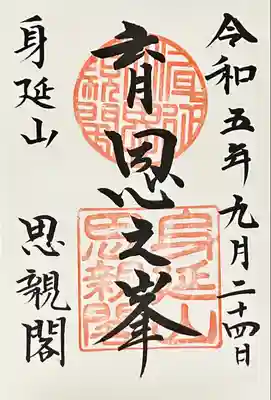 令和五年九月二十四日
育恩之峯
身延山
思親閣
身延山
思親閣